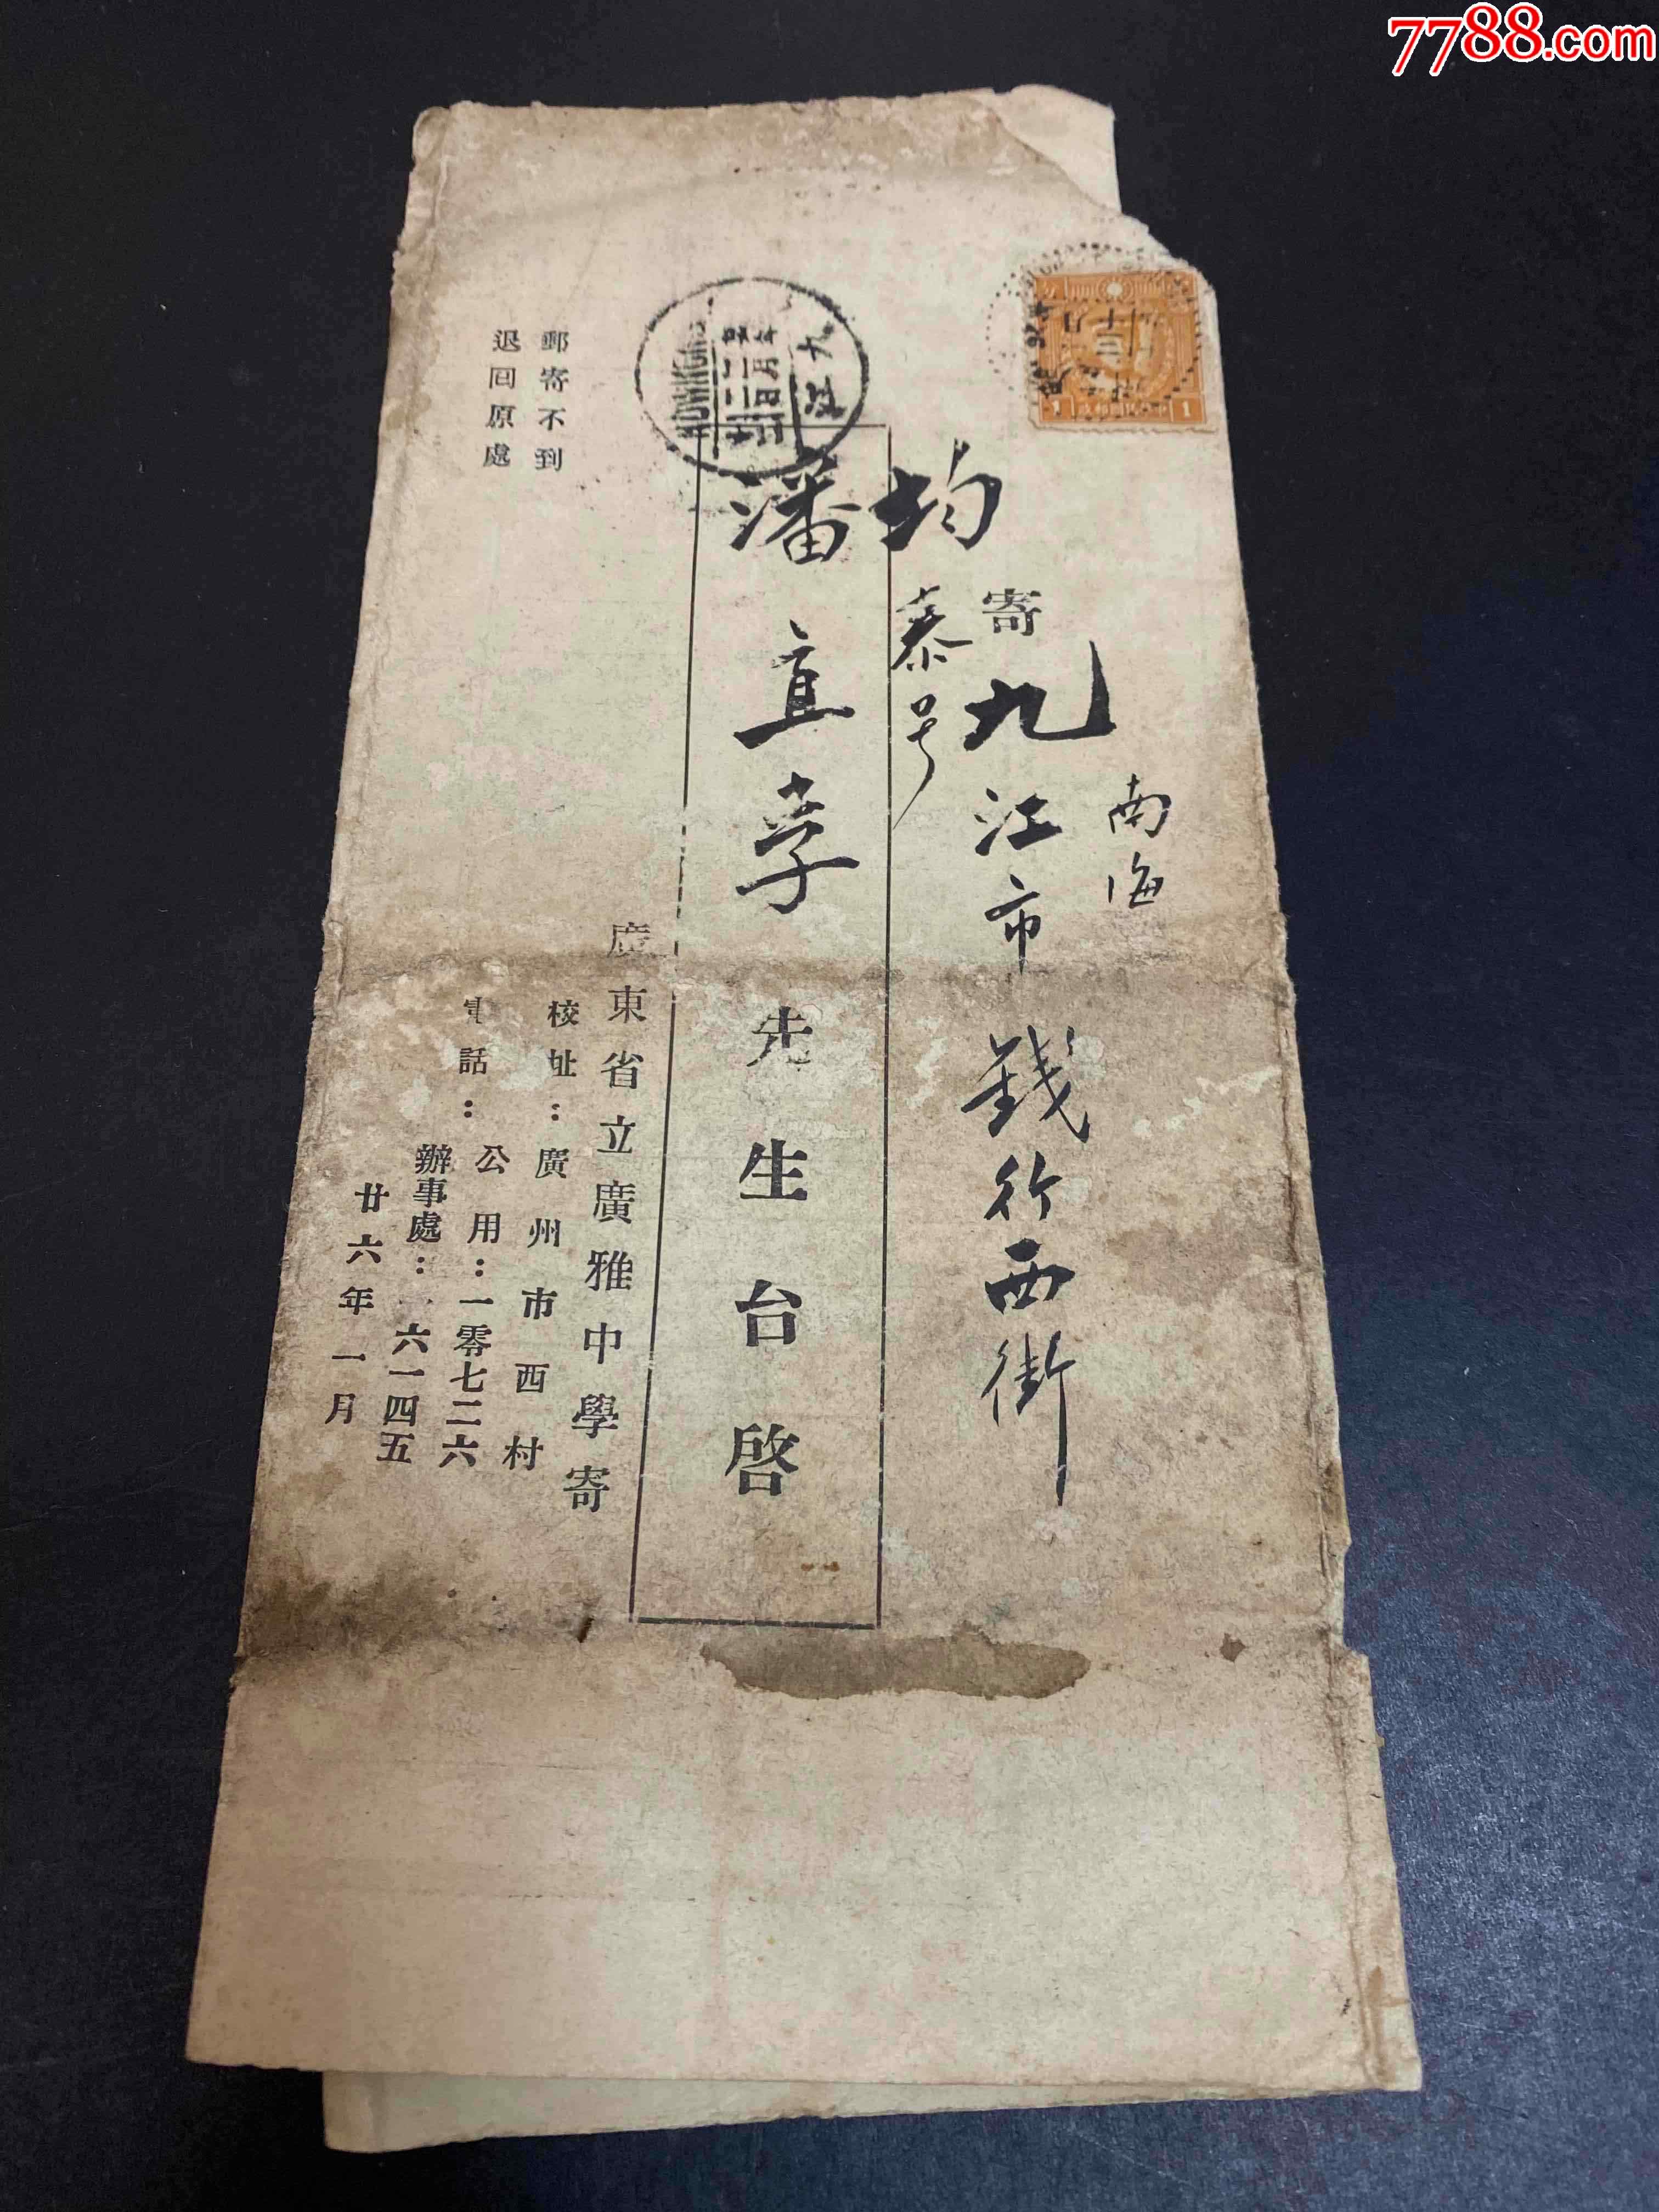 7788.com
南海
寄九江市錢行西街
均泰号
潘直孝先生台啓
廣東省立廣雅中學寄
校址：廣州市西村
電話：公用：一零七二六
辦事處：一六一四五
廿六年一月
郵寄不到
退回原處
九江
1
1